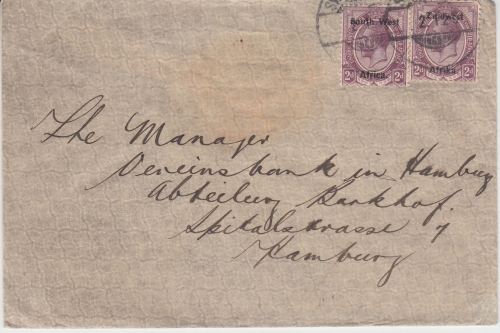 South West
Africa.
2d 2d
Zuidwest
Afrika.
2d 2d
The Manager
Vereinsbank in Hamburg
Abteilung Barkhof.
Spitalstrasse 7
Hamburg